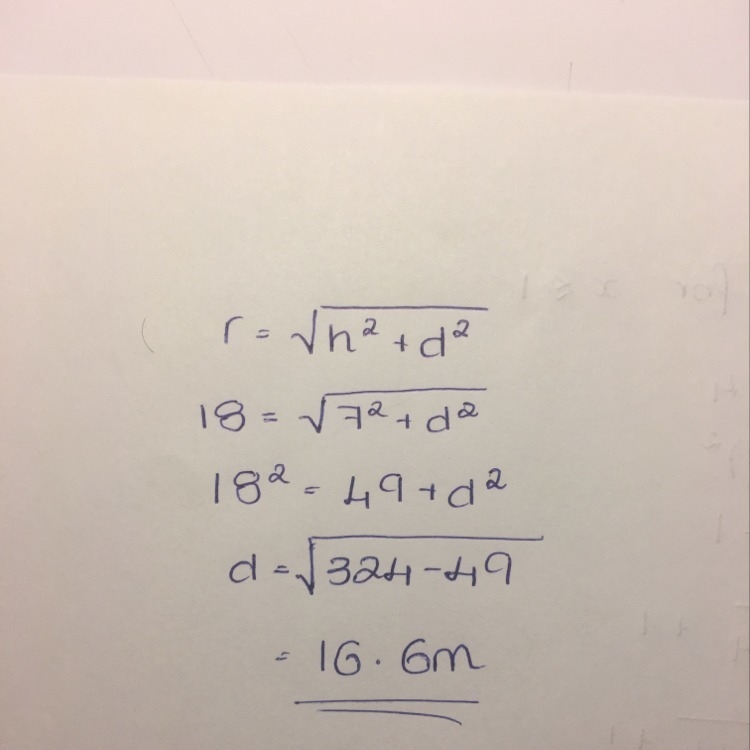 r = √h² + d²
18 = √7² + d²
18² = 49 + d²
d = √324 - 49
= 16.6m